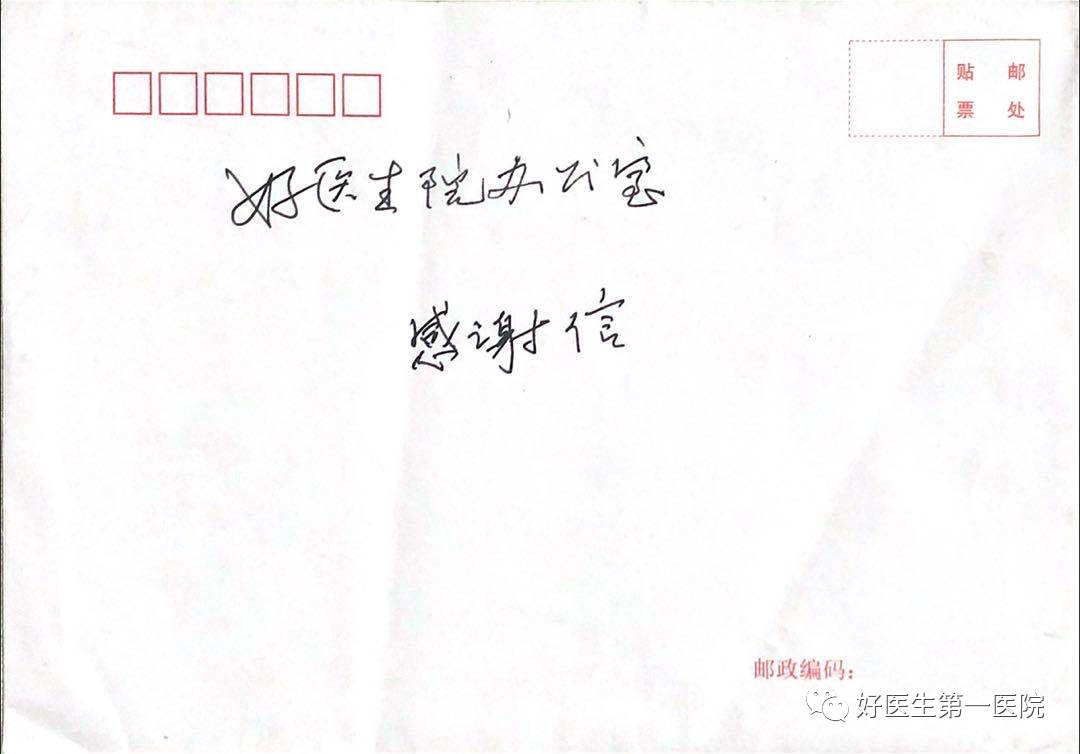 贴 邮
票 处
好医生院办公室
感谢信
邮政编码：
好医生第一医院